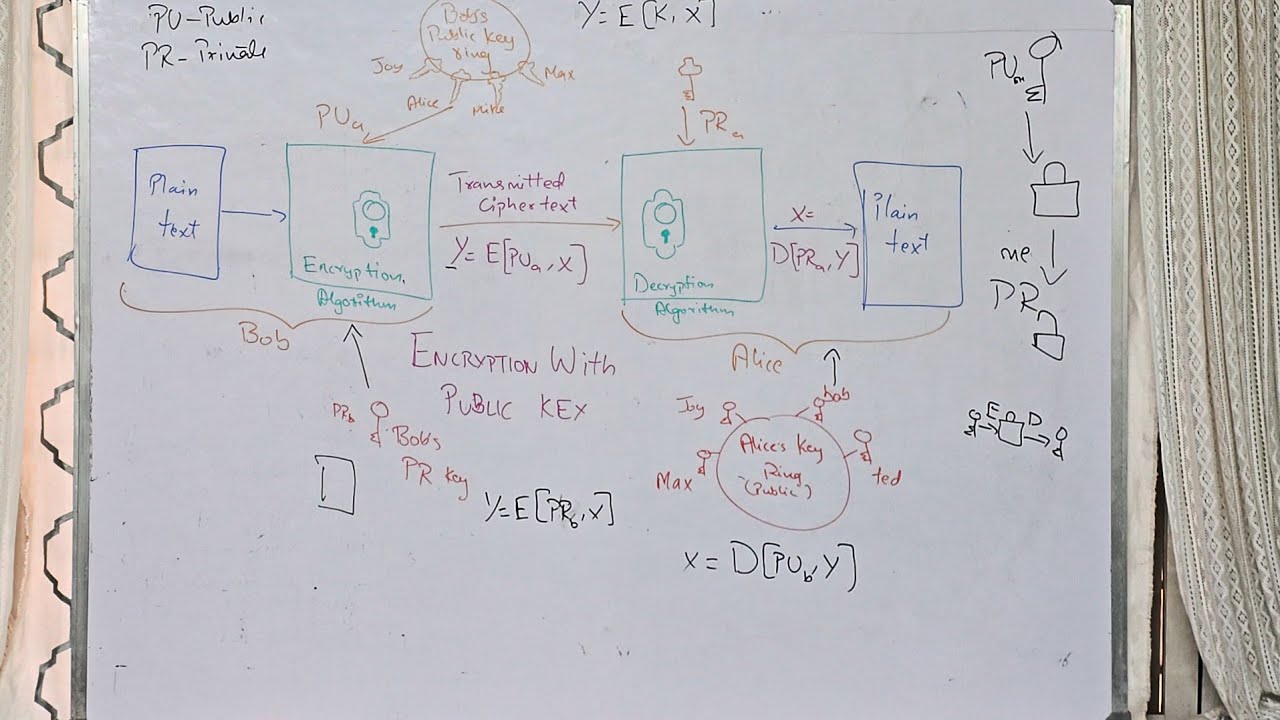 PU-Public
PR-Private
Bob's
Public Key
ring
Joy
Alice
Mike
Max
Y=E[K, X]
PUa
PRa
PU
Plain
text
Encryption
Algorithm
Transmitted
Ciphertext
Y=E[PUa, X]
Decryption
Algorithm
X=
D[PRa, Y]
Plain
text
me
PR
Bob
Alice
ENCRYPTION WITH
PUBLIC KEY
PRb
Bob's
PR Key
Y=E[PRb, X]
Joy
bob
Max
ted
Alice's Key
Ring
(Public)
X = D[PUb, Y]
E
D